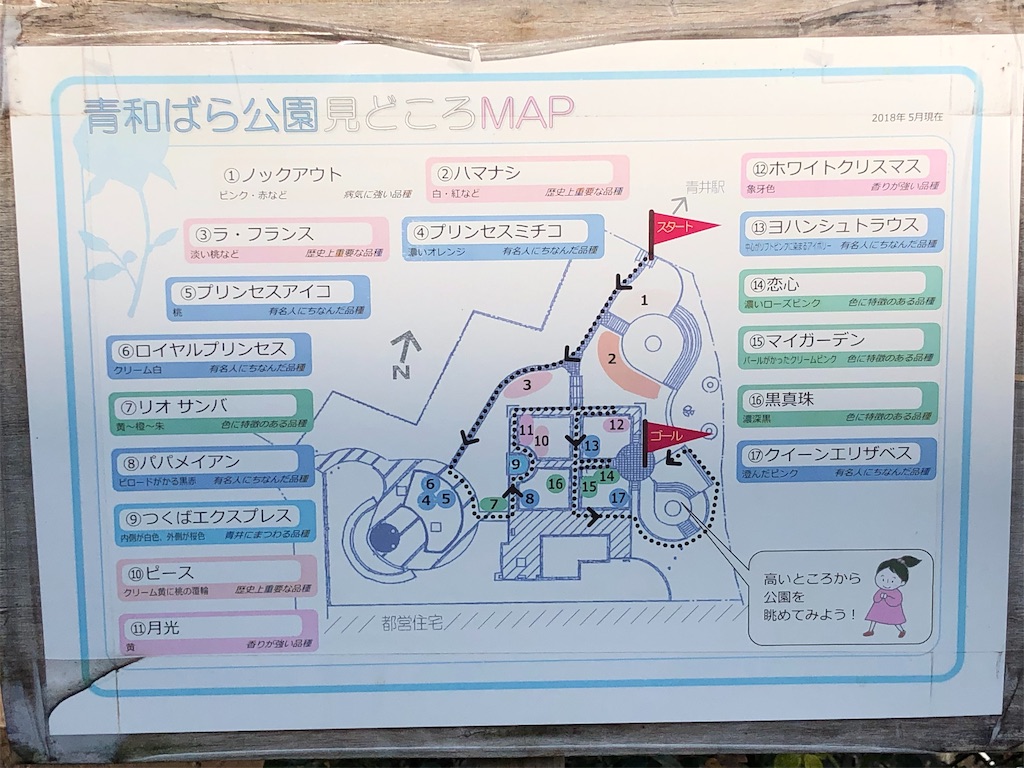 青和ばら公園見どころMAP
2018年 5月現在
①ノックアウト
ピンク・赤など 病気に強い品種
②ハマナシ
白・紅など 歴史上重要な品種
③ラ・フランス
淡い桃など 歴史上重要な品種
④プリンセスミチコ
濃いオレンジ 有名人にちなんだ品種
⑤プリンセスアイコ
桃 有名人にちなんだ品種
⑥ロイヤルプリンセス
クリーム白 有名人にちなんだ品種
⑦リオ サンバ
黄～橙～朱 色に特徴のある品種
⑧パパメイアン
ビロードがかる黒赤 有名人にちなんだ品種
⑨つくばエクスプレス
内側が白色、外側が桜色 青井にまつわる品種
⑩ピース
クリーム黄に桃の覆輪 歴史上重要な品種
⑪月光
黄 香りが強い品種
⑫ホワイトクリスマス
象牙色 香りが強い品種
⑬ヨハンシュトラウス
中心がソフトピンクに染まるアイボリー 有名人にちなんだ品種
⑭恋心
濃いローズピンク 色に特徴のある品種
⑮マイガーデン
パールがかったクリームピンク 色に特徴のある品種
⑯黒真珠
濃深黒 色に特徴のある品種
⑰クイーンエリザベス
澄んだピンク 有名人にちなんだ品種
青井駅
スタート
N
1
2
3
11
10
12
ゴール
13
9
6
4
5
7
8
16
14
15
17
都営住宅
高いところから
公園を
眺めてみよう！